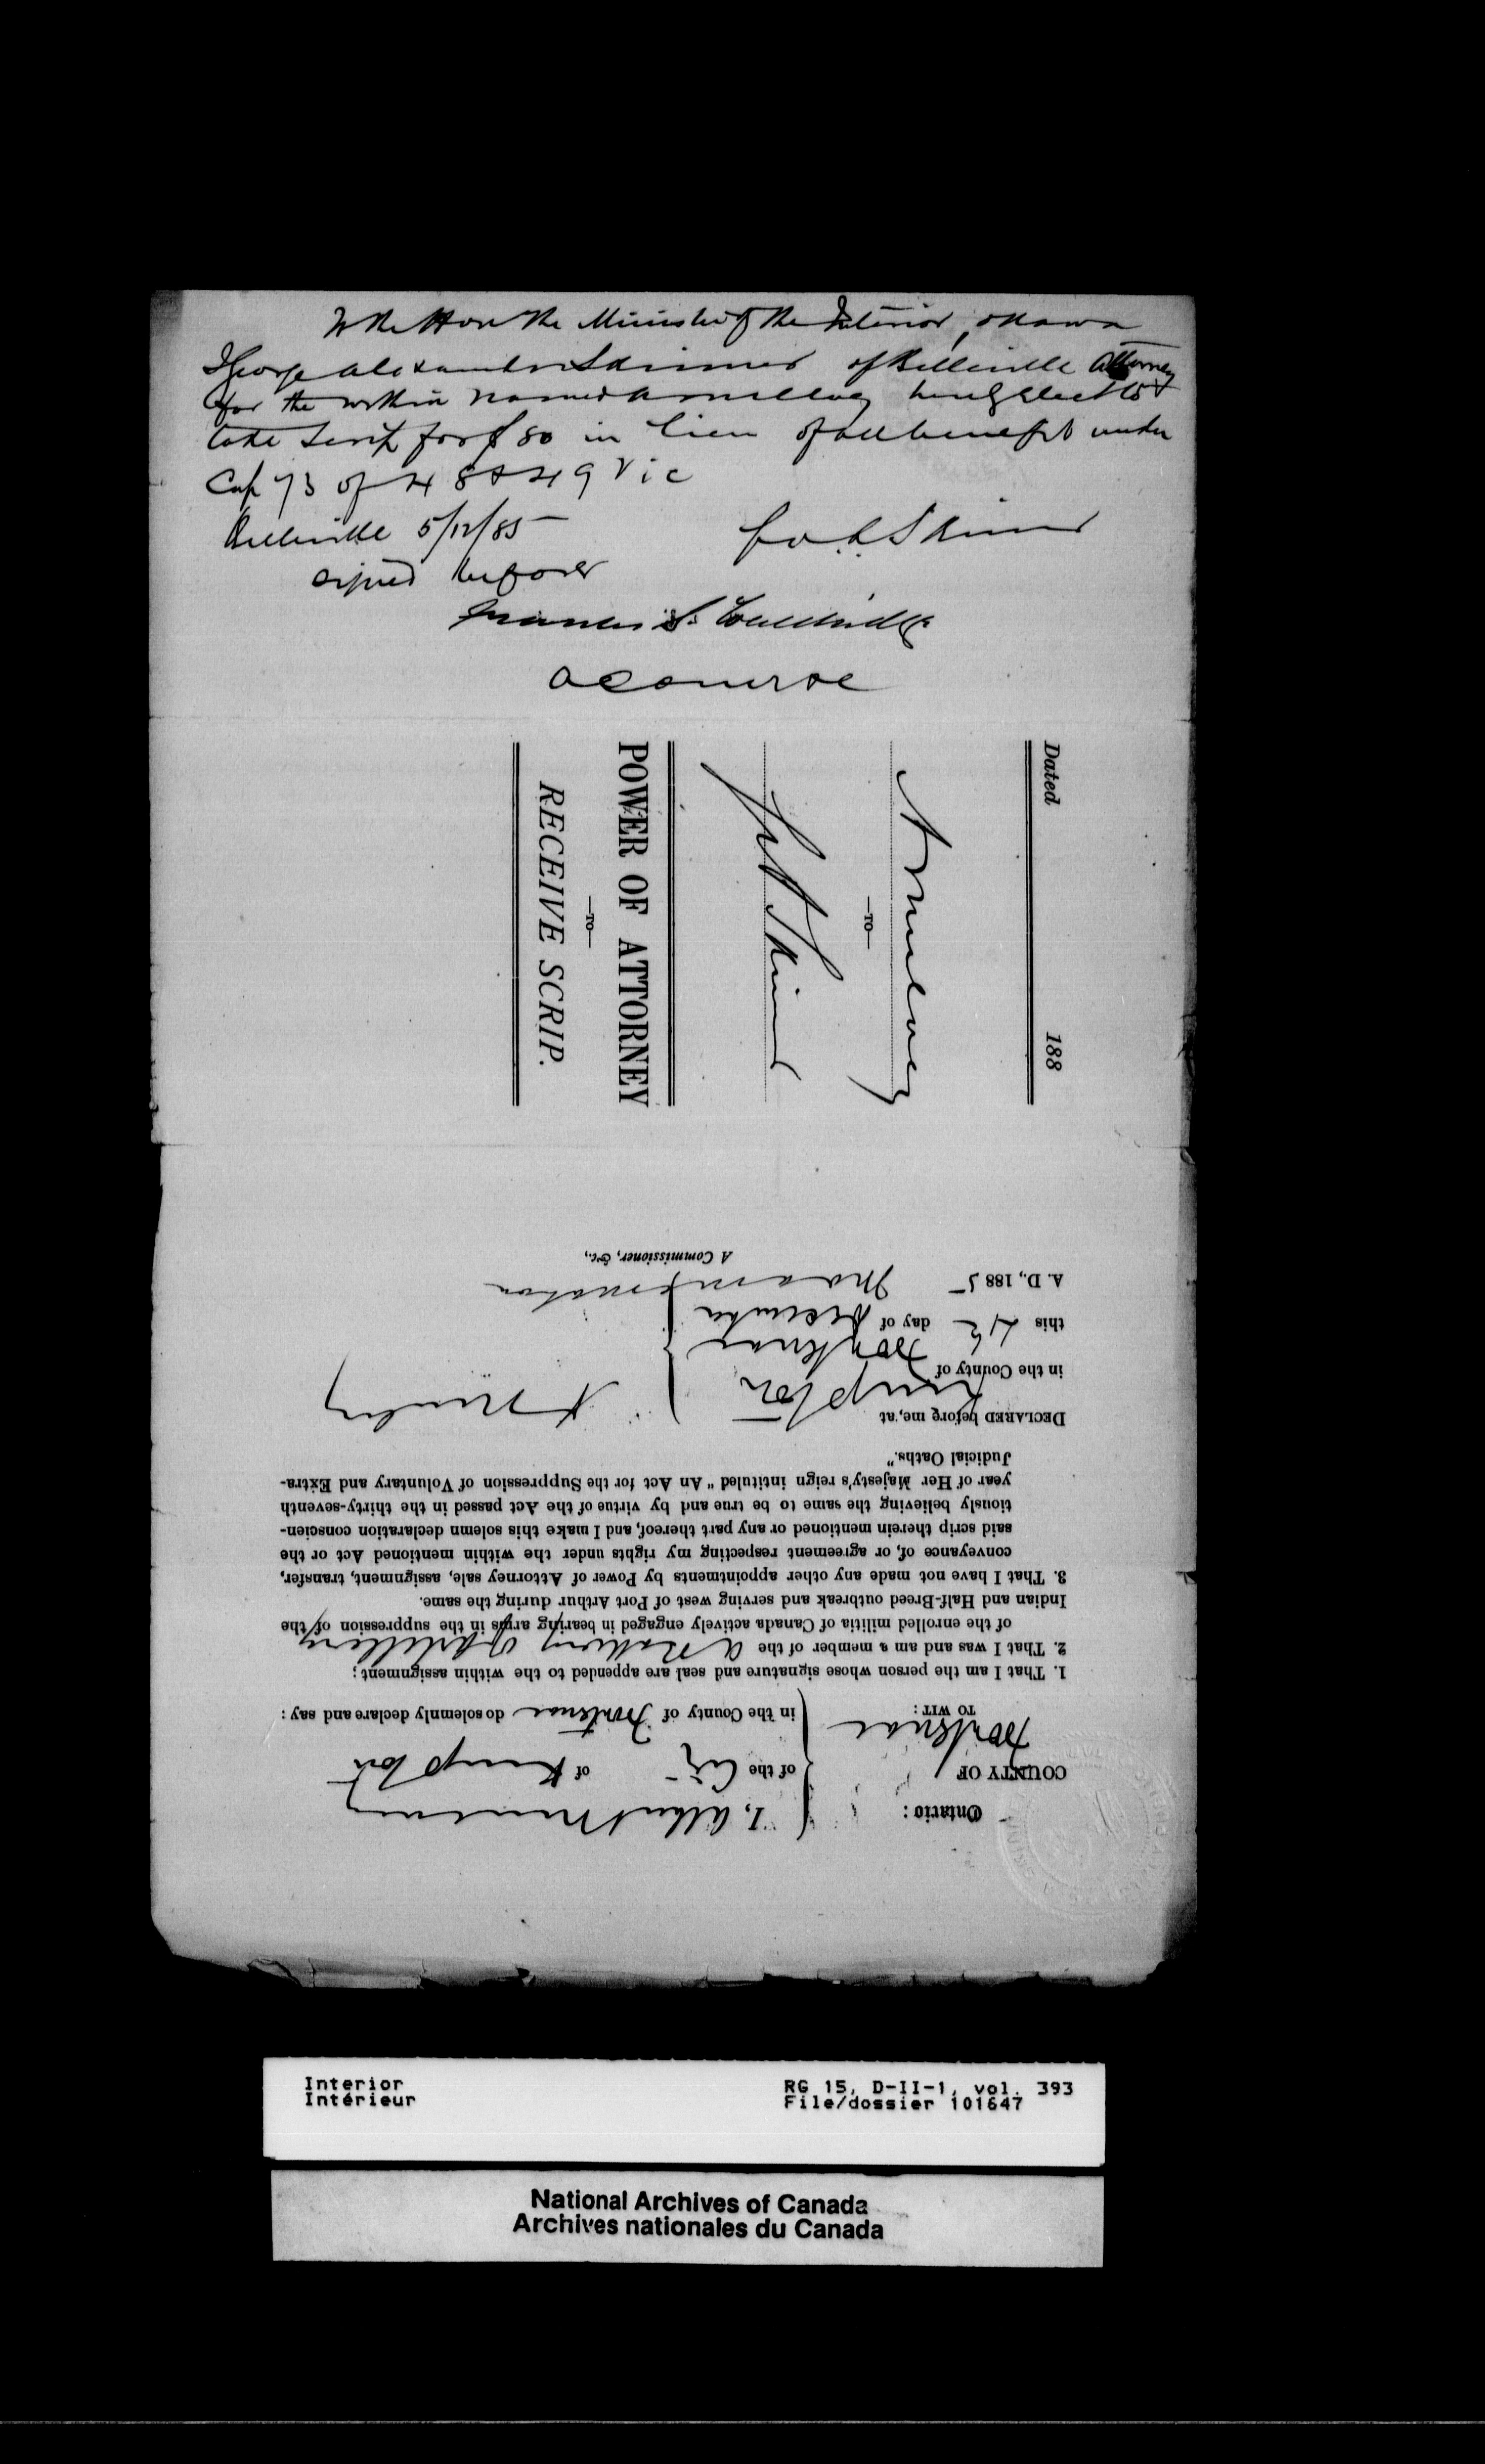 To the Hon the Minister of the Interior, Ottawa
I George Alexander Skinner of Belleville Attorney
for the within named A Munday hereby elect to
take Scrip for $80 in lieu of all benefit under
Cap 73 of 48 & 49 Vic
Belleville 5/12/85
Geo A Skinner
signed before
Francis S.
a Comr &c
Dated 188
A Munday
—TO—
G A Skinner
POWER OF ATTORNEY
—TO—
RECEIVE SCRIP.
Ontario:
COUNTY OF
Frontenac
TO WIT:
I, Albert Munday
of the City of Kingston
in the County of Frontenac do solemnly declare and say:
1. That I am the person whose signature and seal are appended to the within assignment;
2. That I was and am a member of the A Battery of Artillery
of the enrolled militia of Canada actively engaged in bearing arms in the suppression of the
Indian and Half-Breed outbreak and serving west of Port Arthur during the same.
3. That I have not made any other appointments by Power of Attorney sale, assignment, transfer,
conveyance of, or agreement respecting my rights under the within mentioned Act or the
said scrip therein mentioned or any part thereof, and I make this solemn declaration conscien-
tiously believing the same to be true and by virtue of the Act passed in the thirty-seventh
year of Her Majesty's reign intituled "An Act for the Suppression of Voluntary and Extra-
Judicial Oaths."
DECLARED before me, at
Kingston
in the County of
Frontenac
this 4th day of December
A. D., 1885
A Munday
A Commissioner, &c.,
Interior
Intérieur
RG 15, D-II-1, vol. 393
File/dossier 101647
National Archives of Canada
Archives nationales du Canada